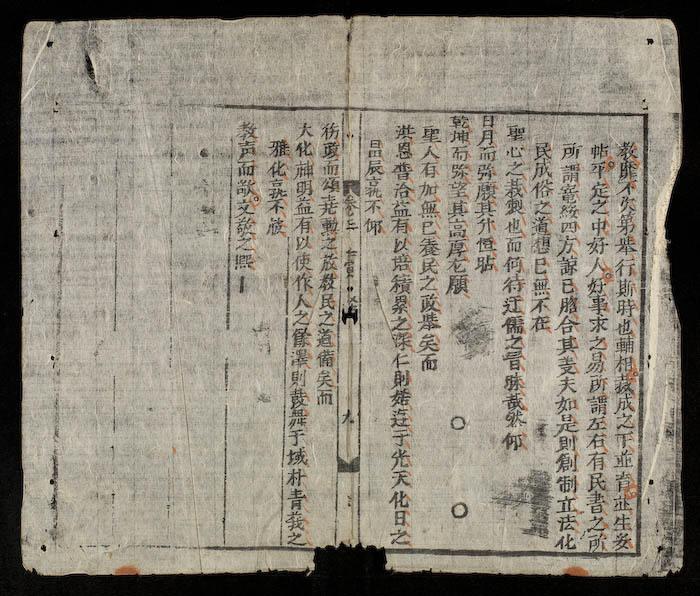 教靡不次第舉行斯時也輔相裁成之下並育並生妥
帖平定之中好人好事求之易所謂左右有民書之所
所謂寵綏四方諒已脗合其意夫如是則創制立法化
民成俗之道想已無不在
聖心之裁製也而何待迂儒之旨昧哉然仰
日月而弥願其升恒貼
乾坤而弥望其高厚尤願
聖人有加無已養民之政舉矣而
洪恩普洽益有以培積累之深仁則嬉遊于光天化日之
昌辰孰不仰
務政而頌 動之放教民之道備矣而
大化神明益有以使作人之餘澤則鼓舞于域朴菁莪之
雅化孰不欣
教声而歌文敬之熙
卷三
九